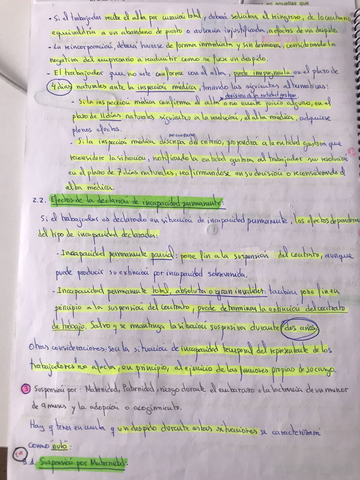 - Si el trabajador recibe el alta por curación total, deberá solicitar el reingreso, de lo contrario
equivaldría a un abandono de puesto o extinción injustificada, a efectos de despido.
- La reincorporación deberá hacerse de forma inmediata y sin demora, considerando la
negativa del empresario a readmitir como si fuese un despido.
- El trabajador que no esté conforme con el alta, puede impugnarla en el plazo de
4 días naturales ante la inspección médica, teniendo las siguientes alternativas:
- Si la inspección médica confirma el alta decisión de la entidad gestora o no emite juicio alguno, en el
plazo de 11 días naturales siguientes a la resolución, el alta médica, adquiere
plenos efectos.
- Si la inspección médica discrepa del criterio, propondrá a la entidad gestora que
reconsidere la situación, notificando la entidad gestora al trabajador su resolución
en el plazo de 7 días naturales, reafirmándose en su decisión o reconsiderando el
alta médica.
2.2. Efectos de la declaración de incapacidad permanente:
Si el trabajador es declarado en situación de incapacidad permanente, los efectos dependerán
del tipo de incapacidad declarada:
- Incapacidad permanente parcial: pone fin a la suspensión del contrato, aunque
puede producir su extinción por incapacidad sobrevenida.
- Incapacidad permanente total, absoluta o gran invalidez: también pone fin en
principio a la suspensión del contrato, puede determinar la extinción del contrato
de trabajo. Salvo q se mantenga la situación suspensiva durante dos años.
Otras consideraciones: sea la situación de incapacidad temporal del representante de los
trabajadores no afecta, en principio, al ejercicio de las funciones propias de su cargo.
③ Suspensión por: Maternidad, Paternidad, riesgo durante el embarazo o la lactancia de un menor
de 9 meses y la adopción o acogimiento.
Hay q tener en cuenta q un despido durante estas situaciones se caracterizará
como nulo:
3.1. Suspensión por Maternidad: